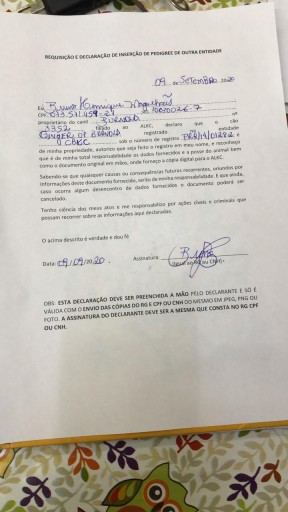 REQUISIÇÃO E DECLARAÇÃO DE INSERÇÃO DE PEDIGREE DE OUTRA ENTIDADE
09 de SETEMBRO 2020
Eu Bruno Henrique
CPF nº
proprietário do canil
filiado ao ALEC, declaro que o cão
registrado entidade
CBKC sob o número de registro e
de minha propriedade, autorizo que seja feito o registro em meu nome, e reconheço
que é de minha total responsabilidade os dados fornecidos e a posse do animal bem
como o documento original em mãos, onde forneço a cópia digital para o ALEC.
Sabendo-se que quaisquer causas ou consequências futuras recorrentes, oriundos por
informações deste documento fornecido, serão de minha responsabilidade. E que ainda,
caso ocorra algum desencontro de dados fornecidos o documento poderá ser
cancelado.
Tenho ciência dos meus atos e me responsabilizo por ações cíveis e criminais que
possam recorrer sobre as informações aqui declaradas.
O acima descrito é verdade e dou fé
Data: 09/09/2020. Assinatura:
(igual ao RG ou CNH)
OBS: ESTA DECLARAÇÃO DEVE SER PREENCHIDA A MÃO PELO DECLARANTE E SÓ É
VÁLIDA COM O ENVIO DAS CÓPIAS DO RG E CPF OU CNH DO MESMO EM JPEG, PNG OU
FOTO. A ASSINATURA DO DECLARANTE DEVE SER A MESMA QUE CONSTA NO RG CPF
OU CNH.